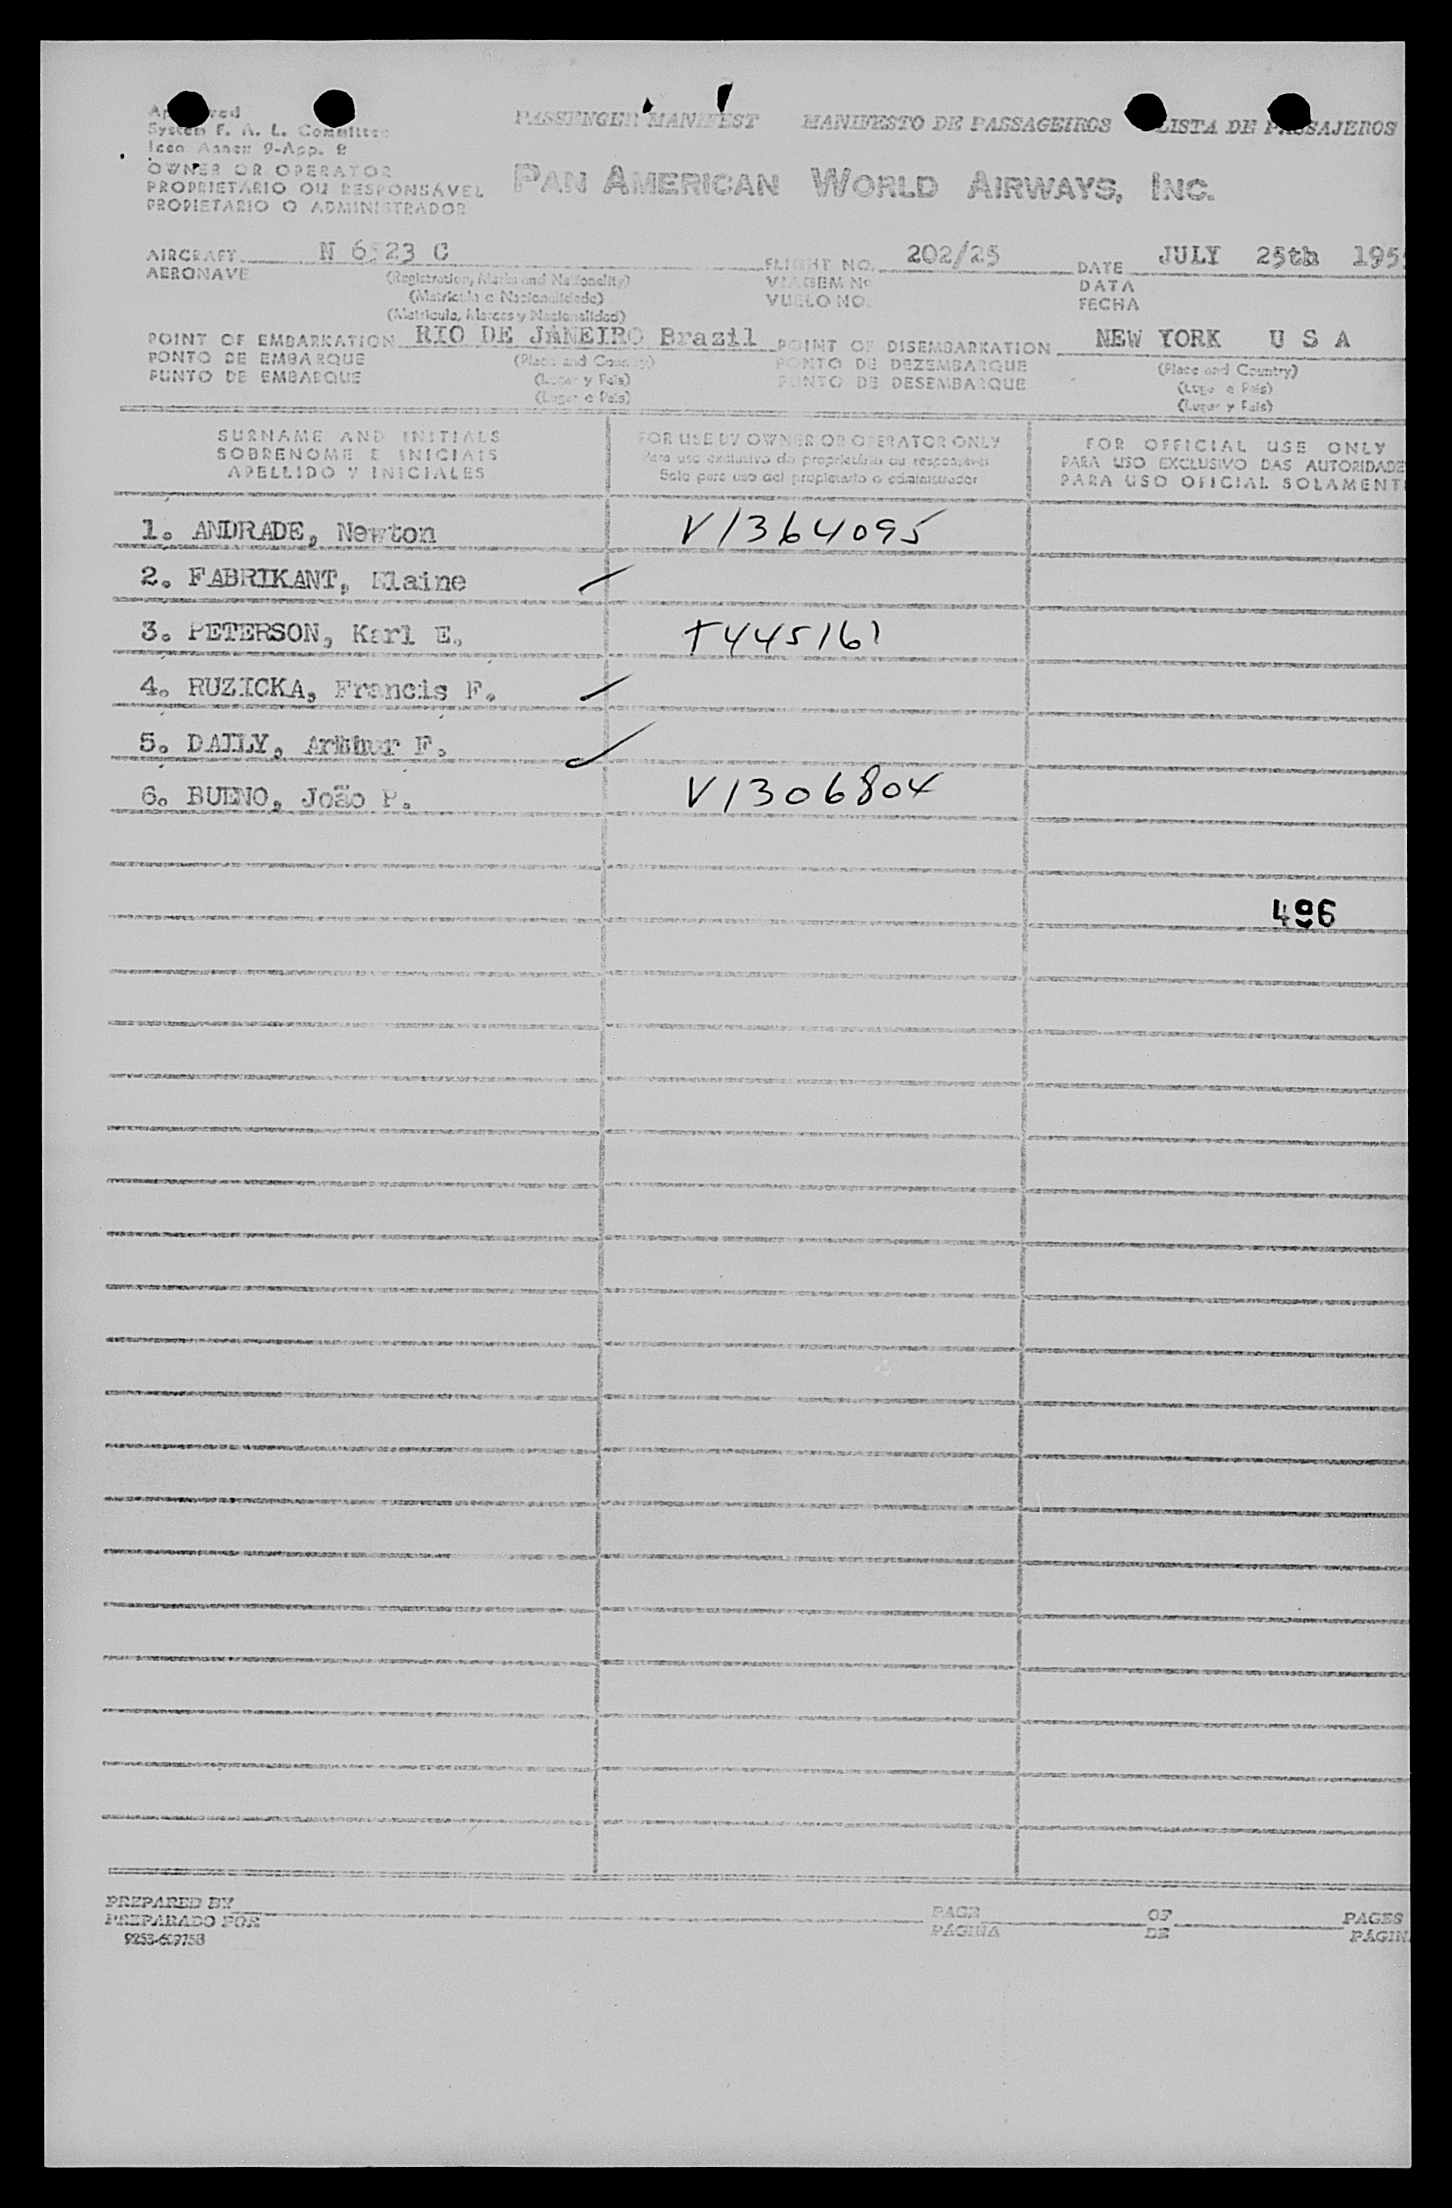 PASSENGER MANIFEST MANIFESTO DE PASSAGEIROS LISTA DE PASAJEROS
System F. A. L. Committee
Icao Annex 9-App. 2
OWNER OR OPERATOR
PROPRIETARIO OU RESPONSAVEL
PROPIETARIO O ADMINISTRADOR
PAN AMERICAN WORLD AIRWAYS, INC.
AIRCRAFT N 6523 C FLIGHT NO. 202/25 DATE JULY 25th 195
AERONAVE (Registration, Marks and Nationality) VIAGEM No DATA
(Matricula e Nacionalidade) VUELO NO. FECHA
(Matricula, Marcas y Nacionalidad)
POINT OF EMBARKATION RIO DE JANEIRO Brazil POINT OF DISEMBARKATION NEW YORK U S A
PONTO DE EMBARQUE (Place and Country) PONTO DE DEZEMBARQUE (Place and Country)
PUNTO DE EMBARQUE (Lugar y Pais) PUNTO DE DESEMBARQUE (Lugar e Pais)
(Lugar e Pais) (Lugar y Pais)
SURNAME AND INITIALS FOR USE BY OWNER OR OPERATOR ONLY FOR OFFICIAL USE ONLY
SOBRENOME E INICIAIS Para uso exclusivo do proprietário ou responsável PARA USO EXCLUSIVO DAS AUTORIDADE
APELLIDO Y INICIALES Solo para uso del propietario o administrador PARA USO OFICIAL SOLAMENT
1. ANDRADE, Newton V1364095
2. FABRIKANT, Elaine
3. PETERSON, Karl E. T445161
4. RUZICKA, Francis F.
5. DAILY, Arthur F.
6. BUENO, João P. V1306804
496
PREPARED BY PAGE OF PAGES
PREPARADO POR PÁGINA DE PÁGIN
9253-609758